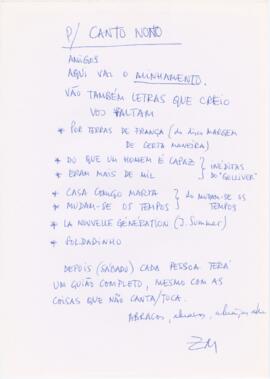 P/ CANTO NONO
AMIGOS
AQUI VAI O ALINHAMENTO.
VÃO TAMBÉM LETRAS QUE CREIO
VOS FALTAM
* POR TERRAS DE FRANÇA (do disco MARGEM
DE CERTA MANEIRA)
* DO QUE UM HOMEM É CAPAZ } INÉDITAS
* ERAM MAIS DE MIL } DO "GULLIVER"
* CASA COMIGO MARTA } do MUDAM-SE OS
* MUDAM-SE OS TEMPOS } TEMPOS
* LA NOUVELLE GÉNÉRATION (J. Summer)
* SOLDADINHO
DEPOIS (SÁBADO) CADA PESSOA TERÁ
UM GUIÃO COMPLETO, MESMO COM AS
COISAS QUE NÃO CANTA/TOCA.
ABRAÇOS, abraços,
ZM